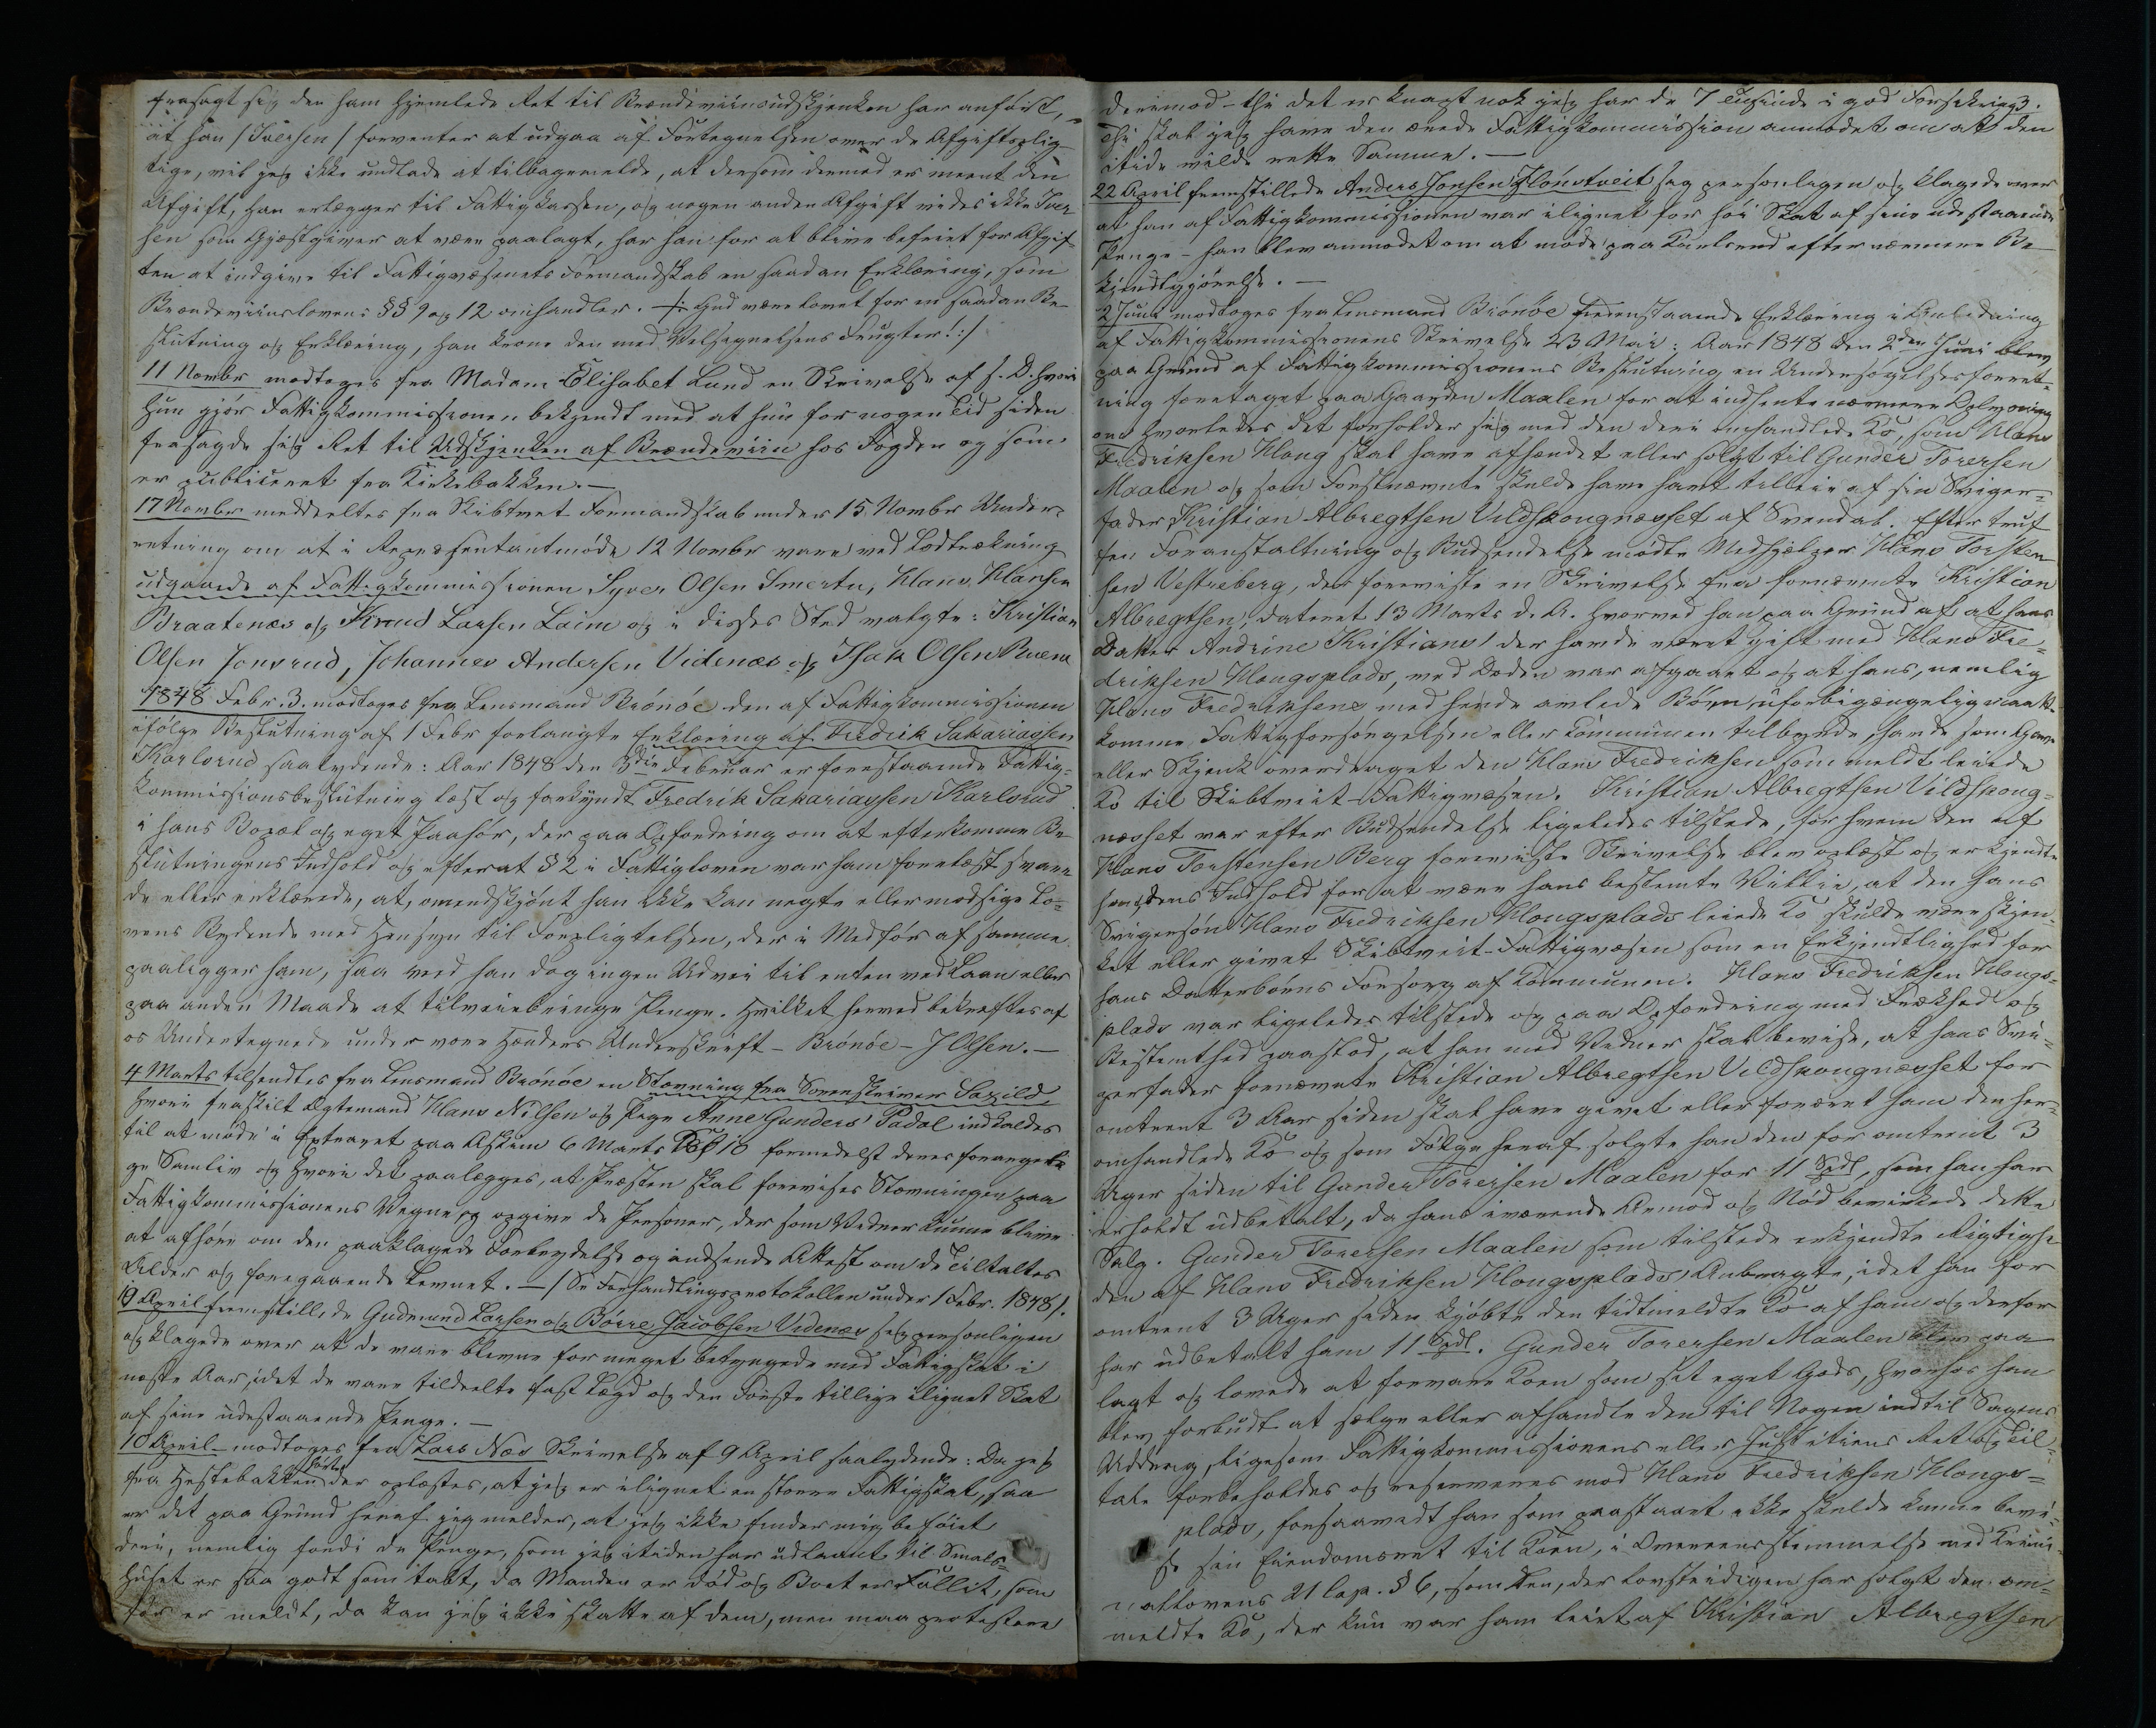 frasagt sig den ham hjemlede Ret til Brændeviinsudskjenken har anført,
at han /Iversen/ forventer at udgaa af Fortegnelsen over de Afgiftsplig-
tige, vil jeg ikke undlade at tilbagemelde, at dersom dermed er meent den
Afgift, han erlægger til Fattigkassen, og nogen anden Afgift vides ikke Iver
sen som Gjæstgiver at være paalagt, har han for at blive befriet for Afgif
ten at indgive til Fattigvæsenets Formandskab en saadan Erklæring, som
Brændeviinslovens §§ 9 og 12 omhandler. /: Gud være lovet for en saadan Be-
slutning og Erklæring, han krone den med Velsignelsens Frugter! :/
11 Novembr modtoges fra Madam Elisabet Lund en Skrivelse af s. D. hvori
hun gjør Fattigkommissionen bekjendt med at hun for nogen Tid siden
frasagde sig Ret til Udskjenken af Brændeviin hos Fogden og som
er publiceret fra Kirkebakken. —
17 Novembr meddeeltes fra Skibtvet Formandskab under 15 Novembr Under-
retning om at i Repræsentantmøde 12 Novembr vare ved Lodtrækning
udgaaede af Fattigkommissionen Syver Olsen Smertu, Hans Hansen
Braatenæs og Knud Larsen Laim og i disses Sted valgte: Kristian
Olsen Jonsrud, Johannes Andersen Videnæs og Isak Olsen Ruena
1848 Febr. 3. modtoges fra Lensmand Brónóe den af Fattigkommissionen
ifølge Beslutning af 1 Febr forlangte Erklæring af Fredrik Sakariassen
Karlsrud saalydende: Aar 1848 den 3die Februar er forestaaende Fattig-
kommissionsbeslutning læst og forkyndt Fredrik Sakariassen Karlsrud
i hans Bopæl og eget Paahør, der paa Opfordring om at efterkomme Be
slutningens Indhold og efterat § 2 i Fattigloven var ham forelæst svare
de eller erklærede, at, omendskjønt han ikke kan negte eller modsige Lo-
vens Bydende med Hensyn til Forpligtelsen, der i Medfør af samme
paaligger ham, saa veed han dog ingen Udvei til enten ved Laan eller
paa anden Maade at tilveiebringe Penge. Hvilket herved bekræftes af
os Undertegnede under vore Hænders Underskrift - Brónóe - J Olsen. —
4 Marts tilsendtes fra Lensmand Brónóe en Stevning fra Sorenskriver Saxild
hvori fraskilt Egtemand Hans Nilsen og Pige Anne Gunders' Padal indkaldes
til at møde i Extraret paa Askim 6 Marts Kl 10 formedelst deres foregave
ge Samliv og hvori det paalægges, at Præsten skal forevises Stevningen paa
Fattigkommissionens Vegne og opgive de Personer, der som Vidner kunne blive
at afhøre om den paaklagede Forbrydelse og indsende Attest om de Tiltaltes
Alder og foregaaende Levnet. — /Se Forhandlingsprotokollen under 1 Febr. 1848/.
9 April fremstillede Gudmund Larsen og Børre Jacobsen Videnæs sig personligen
og klagede over at de vare blevne for meget betyngede med Fattigskat i
næste Aar, idet de vare tildeelte fast Lægd og den Første tillige ilignet Skat
af sine udestaaende Penge. —
10 April modtoges fra Lars Næs Skrivelse af 9 April saalydende: Da jeg
fra Hestebakken hørte der oplæstes, at jeg er ilignet en større Fattigskat, saa
er det paa Grund heraf jeg melder, at jeg ikke finder mig beføiet
deri, nemlig fordi de Penge, som jeg itiden har udlaant til Smals
huset er saa godt som tabt, da Manden er død og Boet er Fallit, som
før er meldt, da kan jeg ikke skatte af dem, men maa protestere
derimod - thi det er knapt nok jeg har de 7 Tusinde i god Forsikring. 3.
Thi skal jeg have den ærede Fattigkommission anmodet om at den
itide vilde rette Samme. —
22 April fremstillede Anders Jonsen Flonstveit sig personligen og klagede over
at han af Fattigkommissionen var ilignet for høi Skat af sine udestaaende
Penge - han blev anmodet om at møde paa Karlsrud efter nærmere Be-
kjendtgjørelse. —
2 Juni modtoges fra Lensmand Brónóe hidenstaaende Erklæring i Anledning
af Fattigkommissionens Skrivelse 23 Mai: Aar 1848 den 2den Juni blev
paa Grund af Fattigkommissionens Beslutning en Undersøgelsesforret-
ning foretaget paa Gaarden Maalen for at indhente nærmere Oplysning
om hvorledes det forholder sig med den deri omhandlede Ko, som Hans
Fredriksen Haug skal have afhændet eller solgt til Gunder Torersen
Maalen og som Førstnævnte skulde have havt tilleie af sin Sviger-
fader Kristian Albregtsen Vildskougnæsset af Svendal. Efter truf
fen Foranstaltning og Budsendelse mødte Medhjælper Hans Torsten-
sen Vestreberg, der foreviste en Skrivelse fra fornævnte Kristian
Albregtsen, dateret 13 Marts d. A. hvorved han paa Grund af at hans
Datter Andrine Kristians' der havde været gift med Hans Fre-
driksen Haugsplads, ved Døden var afgaaet og at hans, nemlig
Hans Fredriksens med hende avlede Børn uforbigængelig maatte
komme Fattigforsørgelsen eller Kommunen tilbyrde, havde som Gave
eller Skjenk overdraget den Hans Fredriksen som meldt leiede
Ko til Skibtveit-Fattigvæsen. Kristian Albregtsen Vildskoug-
næsset var efter Budsendelse ligeledes tilstede, for hvem den af
Hans Torstensen Berg foreviste Skrivelse blev oplæst og erkjendte
han dens Indhold for at være hans bestemte Villie, at den hans
Svigersøn Hans Fredriksen Haugsplads leiede Ko skulde være skjen-
ket eller givet Skibtveit-Fattigvæsen som en Erkjendtlighed for
hans Datterbørns Forsorg af Kommunen. Hans Fredriksen Haugs-
plads var ligeledes tilstede og paa Opfordring med Frækhed og
Bestemthed paastod, at han med Vidner skal bevise, at hans Svi-
gerfader fornævnte Kristian Albregtsen Vildskougnæsset for
omtrent 3 Aar siden skal have givet eller foræret ham den her-
omhandlede Ko og som Følge heraf solgte han den for omtrent 3
Uger siden til Gunder Torersen Maalen for 11 Spdl, som han har
erholdt udbetalt, da hans iværende Armod og Nød bevirkede dette
Salg. Gunder Torersen Maalen som tilstede erkjendte Rigtighe
den af Hans Fredriksen Haugsplads' Anbragte, idet han for
omtrent 3 Uger siden kjøbte den tidtmeldte Ko af ham og derfor
har udbetalt ham 11 Spdl. Gunder Torersen Maalen blev paa
lagt og lovede at forvare Koen som sit eget Gods, hvorhos han
blev forbudt at sælge eller afhandle den til Nogen indtil Sagens
Uddrag, ligesom Fattigkommissionens eller Justitiens Ret og Til-
tale forbeholdes og reserveres mod Hans Fredriksen Haugs-
plads, forsaavidt han som paastaaet ikke skulde kunne bevi-
se sin Eiendomsret til Koen, i Overeensstemmelse med Krimi-
nallovens 21 Cap. § 6, som den, der lovstridigen har solgt den om-
meldte Ko, der kun var ham leiet af Kristian Albregtsen